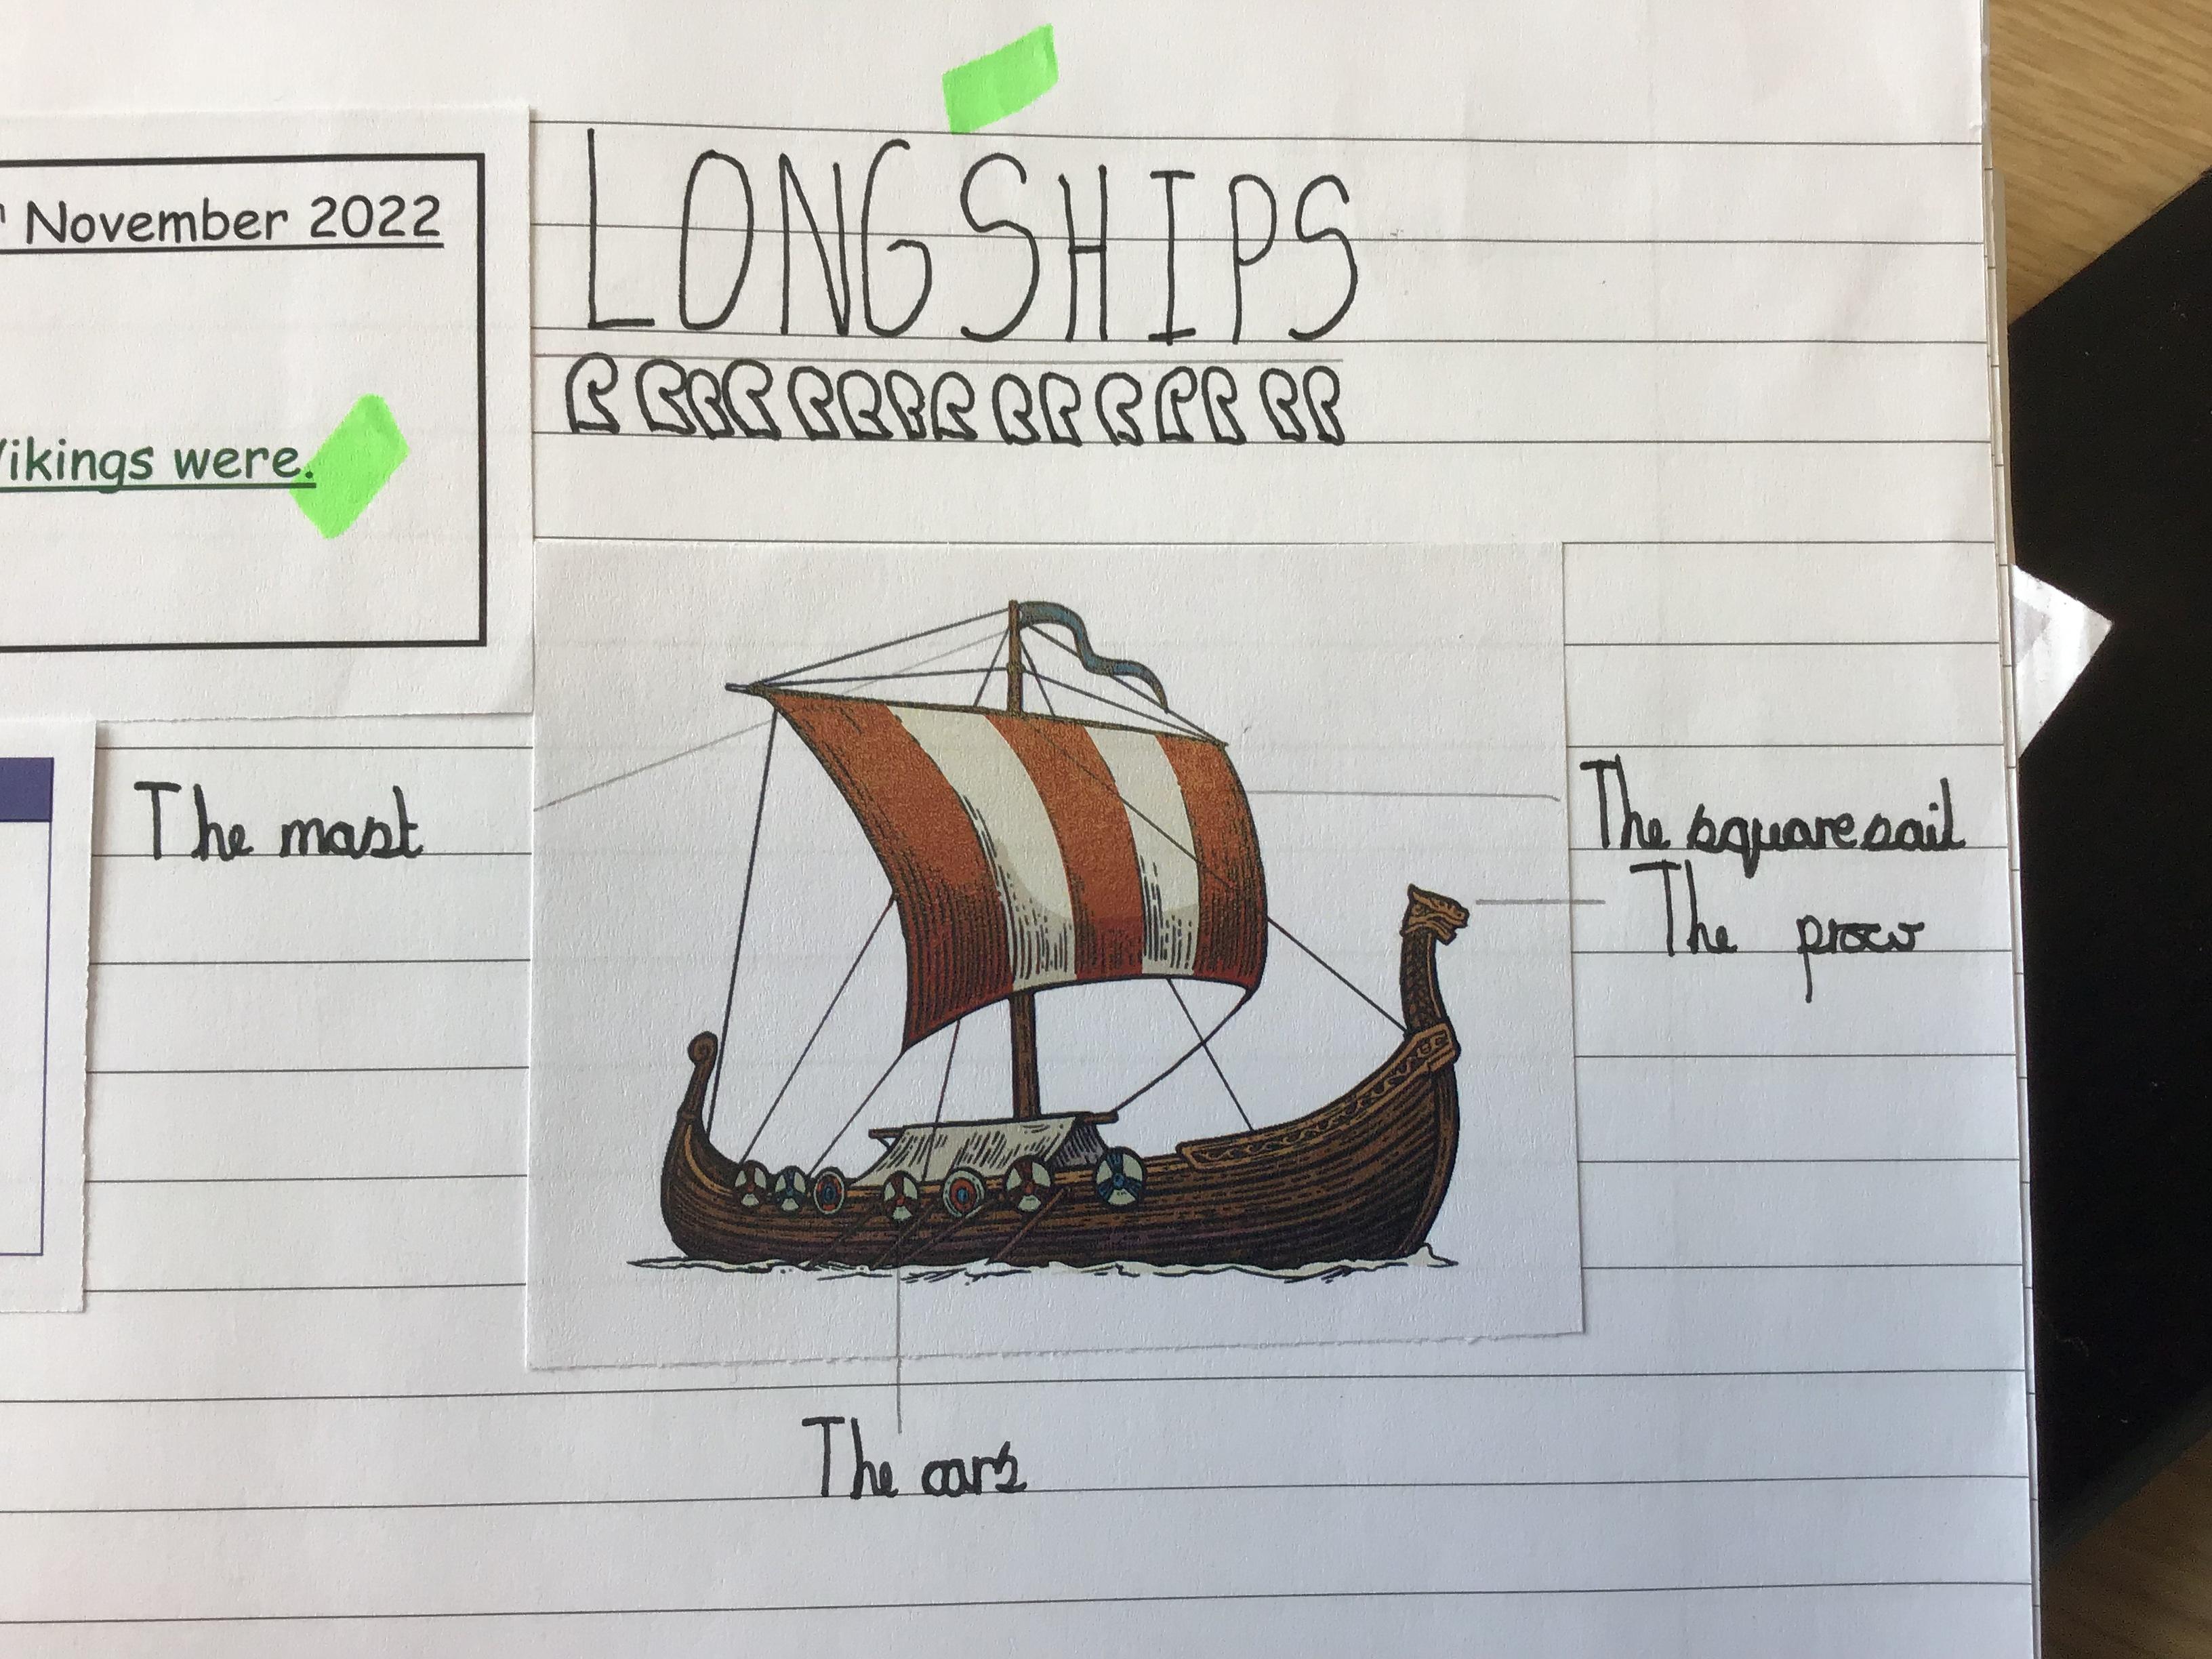 November 2022
LONGSHIPS
Vikings were.
The mast
The square sail
The prow
The oars